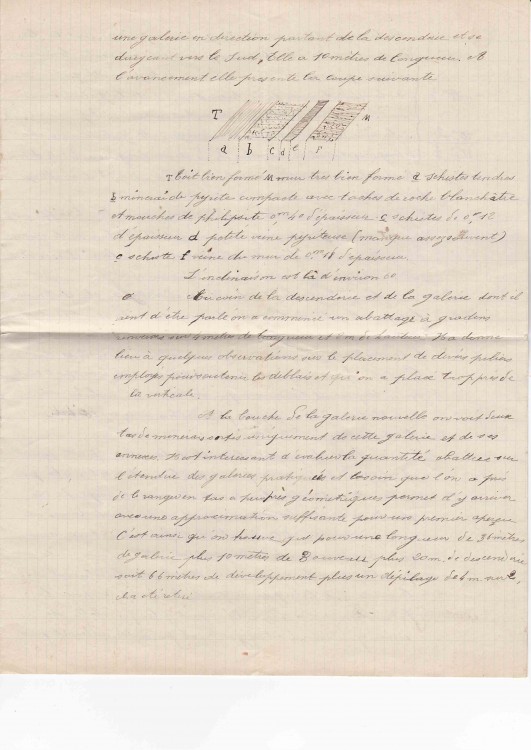 une galerie en direction partant de la descenderie et se
dirigeant vers le Sud, Elle a 10 mètres de longueur. A
l'avancement elle présente la coupe suivante
T M
a b c d e f
T toit bien formé M mur tres bien formé a schistes tendres
b minerai de pyrite compacte avec taches de roche blanchâtre
et mouches de 0m40 d'épaisseur c schistes de 0m12
d'épaisseur d petite veine pyriteuse (manque assez souvent)
e schiste f veine du mur de d'épaisseur.
L'inclinaison est là d'environ 60
Au coin de la descenderie et de la galerie dont il
vient d'être parlé on a commencé un abattage à gradins
de longueur et de hauteur. Il a donné
lieu à quelques observations sur le placement de divers piliers
employés pour soutenir les déblais et qu'on a placé trop près de
la verticale.
A la bouche de la galerie nouvelle on voit deux
tas de minerais sortis uniquement de cette galerie et de ses
annexes. Il est interessant d'évaluer la quantité abattue sur
l'étendue des galeries pratiquées et le soin que l'on a pris
de le ranger en tas à peu près géométriques permet d'y arriver
avec une approximation suffisante pour un premier aperçu
C'est ainsi que on trouve que pour une longueur de 36 mètres
de galerie plus 10 mètres de plus 20 m. de descenderie
soit 66 mètres de développement plus un dépilage de 6 m